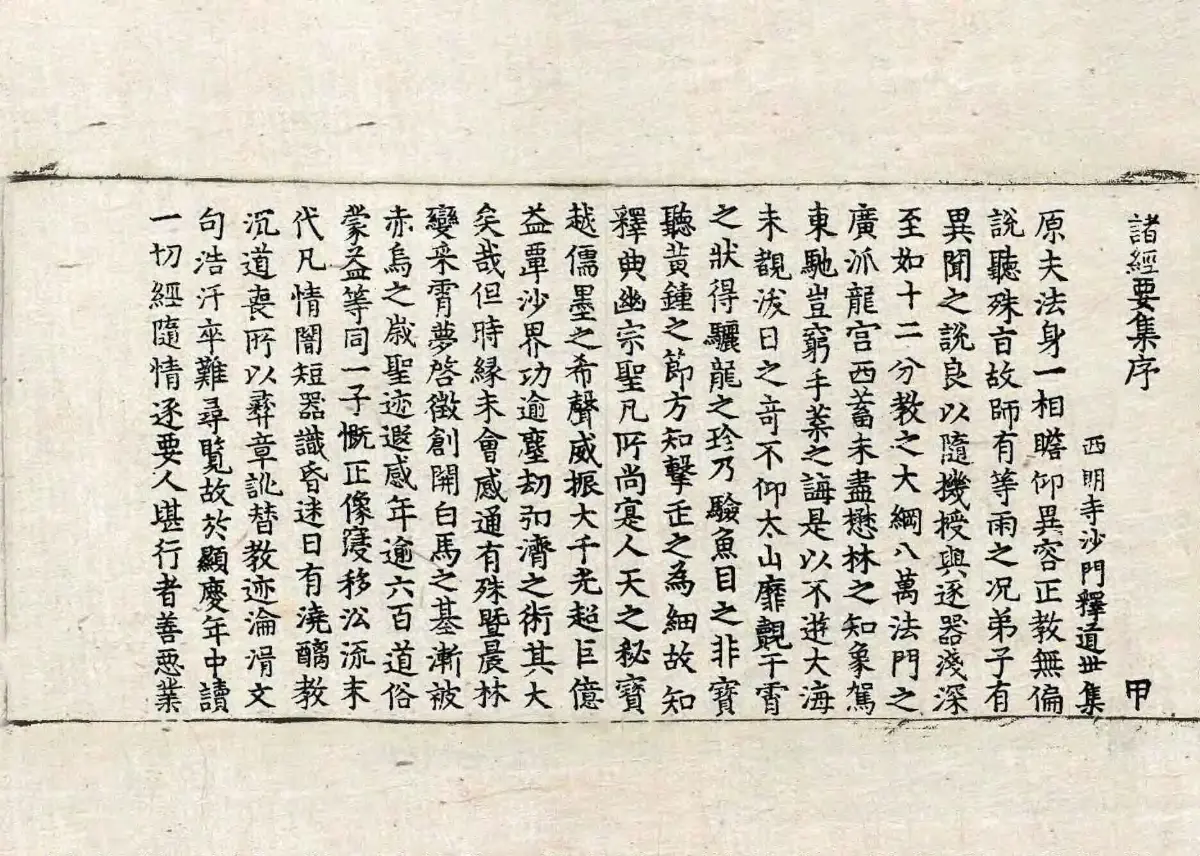 諸經要集序 甲
西明寺沙門釋道世集
原夫法身一相瞻仰異容正教無偏
說聽殊旨故師有等雨之况弟子有
異聞之說良以隨機授與逐器淺深
至如十二分教之大綱八萬法門之
廣泒龍宫西蓄未盡懋林之知象駕
東馳豈窮手葉之誨是以不遊大海
未覩浴日之竒不仰太山靡覿干霄
之狀得驪龍之珍乃驗魚目之非寶
聽黃鍾之節方知擊缶之為細故知
釋典幽宗聖凡所尚寔人天之秘寶
越儒墨之希聲威振大千光超巨億
益覃沙界功逾塵劫弘濟之術其大
矣哉但時縁未會感通有殊暨晨林
變采霄夢啓徵創開白馬之基漸被
赤烏之歲聖迹遐感年逾六百道俗
蒙益等同一子慨正像寖移沿流末
代凡情闇短器識昏迷日有澆醨教
沉道喪所以彝章訛替教迹淪滑文
句浩汗卒難尋覽故於顯慶年中讀
一切經隨情逐要人堪行者善惡業